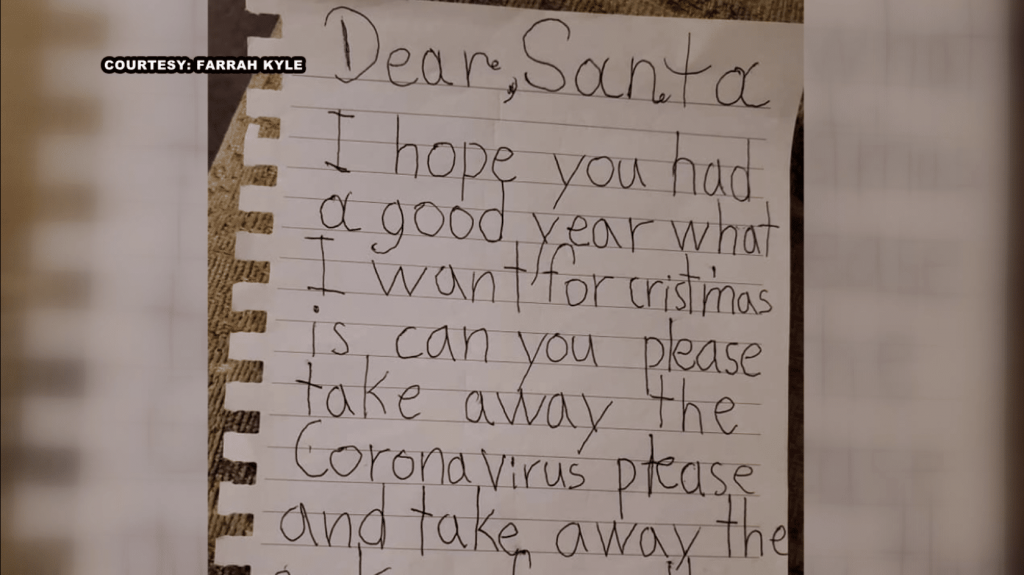 COURTESY: FARRAH KYLE
Dear, Santa
I hope you had
a good year what
I want for cristmas
is can you please
take away the
Coronavirus please
and take away the